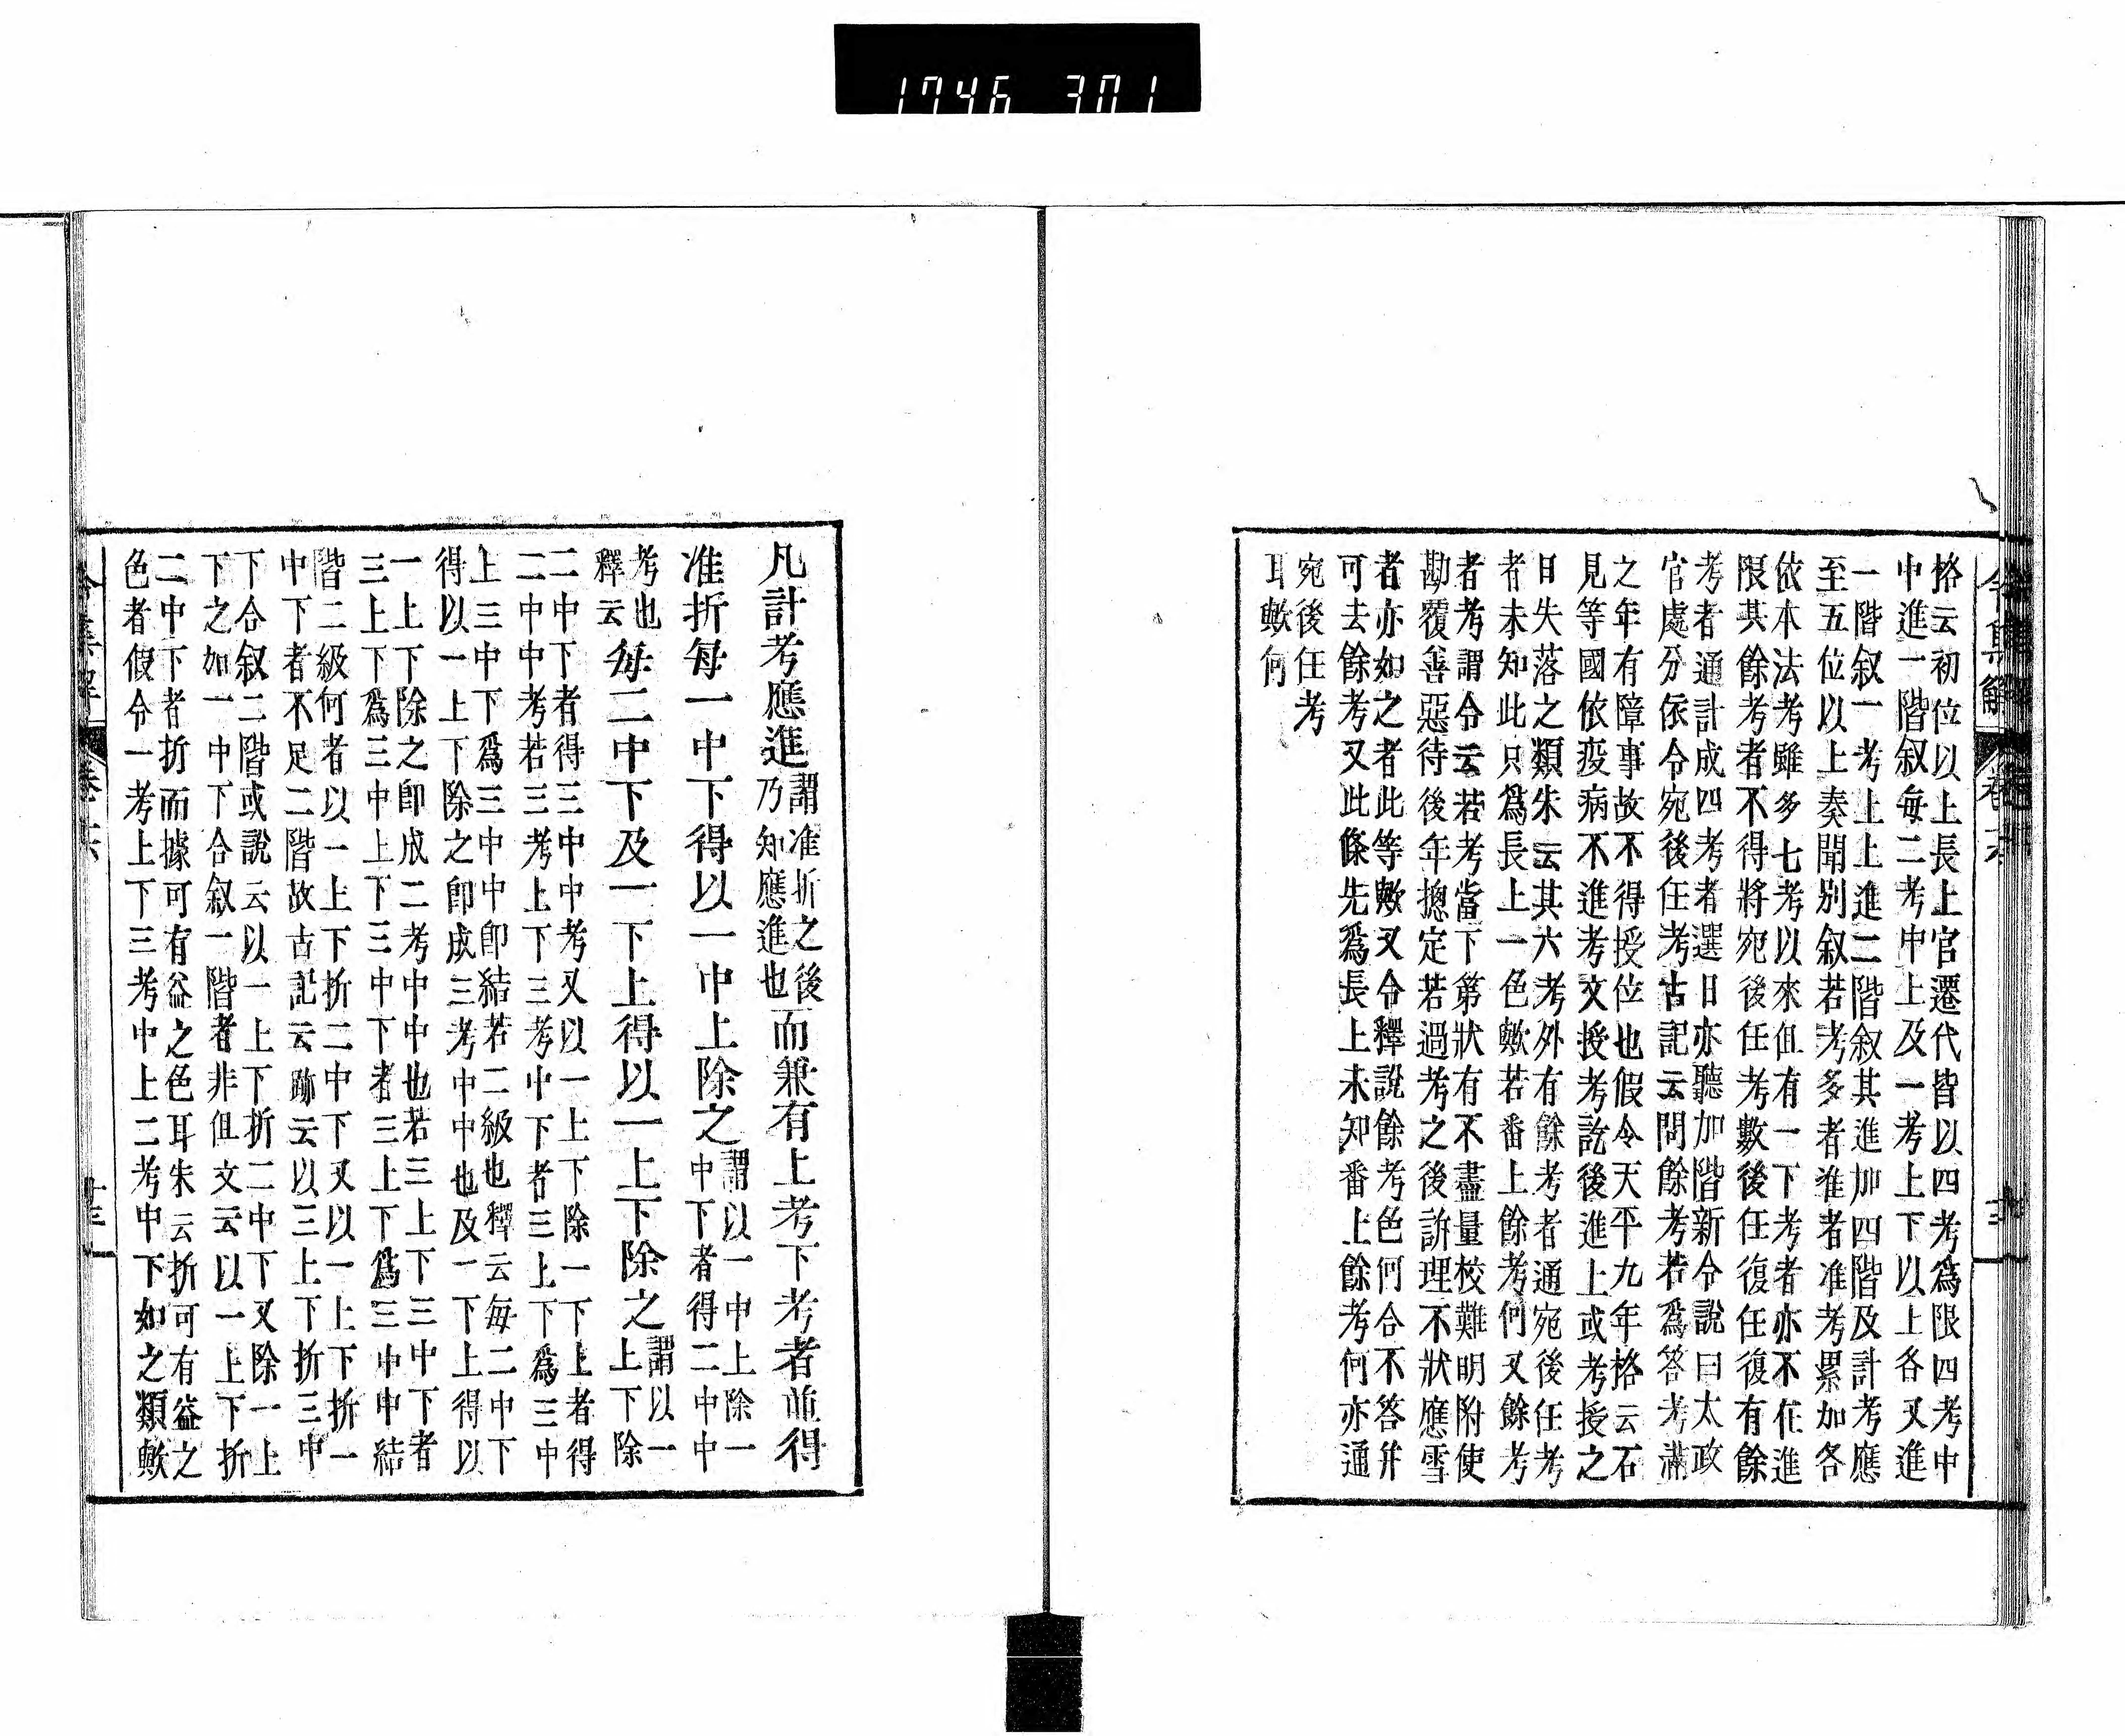 1746 301
令集解 卷六
格云初位以上長上官遷代皆以四考爲限四考中
中進一階叙毎二考中上及一考上下以上各又進
一階叙一考上上進二階叙其進加四階及計考應
至五位以上奏聞别叙若考多者進者准考累加各
依本法考雖多七考以來但有一下考者亦不在進
限其餘考者不得將宛後任考數後任復任復有餘
考者通計成四考者選日亦聽加階新令說曰太政
官處分依令宛後任考古記云問餘考若爲答考滿
之年有障事故不得授位也假令天平九年格云石
見等國依疫病不進考文授考訖後進上或考授之
日失落之類朱云其六考外有餘考者通宛後任考
者未知此只爲長上一色歟若番上餘考何又餘考
者考謂令云若考當下第狀有不盡量校難明附使
勘覆善惡待後年摠定若過考之後訴理不狀應雪
者亦如之者此等歟又令釋說餘考色何合不答幷
可去餘考又此條先爲長上未知番上餘考何亦通
宛後任考
耳歟何
凡計考應進謂准折之後
乃知應進也而兼有上考下考者並得
准折毎一中下得以一中上除之謂以一中上除一
中下者得二中中
考也
釋云毎二中下及一下上得以一上下除之謂以一
上下除
二中下者得三中中考又以一上下除一下上者得
二中中考若三考上下三考中下者三上下爲三中
上三中下爲三中中卽結若二級也釋云毎二中下
得以一上下除之卽成三考中中也及一下上得以
一上下除之卽成二考中中也若三上下三中下者
三上下爲三中上下三中下者三上下爲三中中結
階二級何者以一上下折二中下又以一上下折一
中下者不足二階故古記云跡云以三上下折三中
下合叙二階或說云以一上下折二中下又除一上
下之如一中下合叙一階者非但文云以一上下折
二中下者折而據可有益之色耳朱云折可有益之
色者假令一考上下三考中上二考中下如之類歟